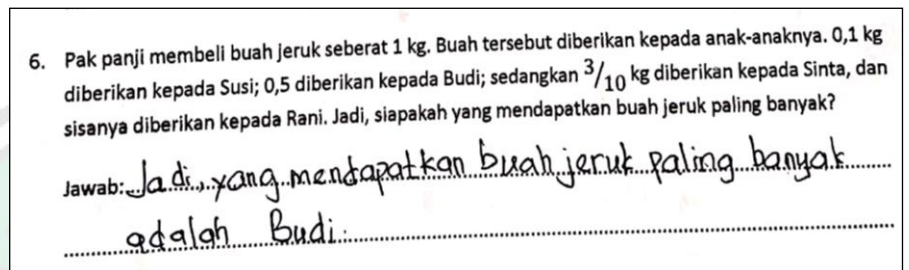 6. Pak panji membeli buah jeruk seberat 1 kg. Buah tersebut diberikan kepada anak-anaknya. 0,1 kg
diberikan kepada Susi; 0,5 diberikan kepada Budi; sedangkan 3/10 kg diberikan kepada Sinta, dan
sisanya diberikan kepada Rani. Jadi, siapakah yang mendapatkan buah jeruk paling banyak?
Jawab: Jadi, yang mendapatkan buah jeruk paling banyak
adalah Budi.